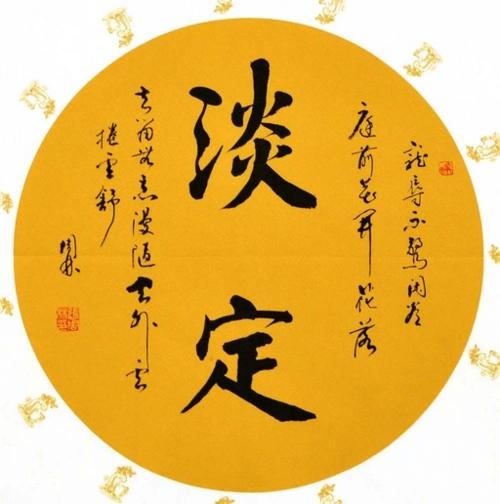 寵辱不驚閑看
庭前花開花落
淡定
去留無意漫隨天外雲
捲雲舒